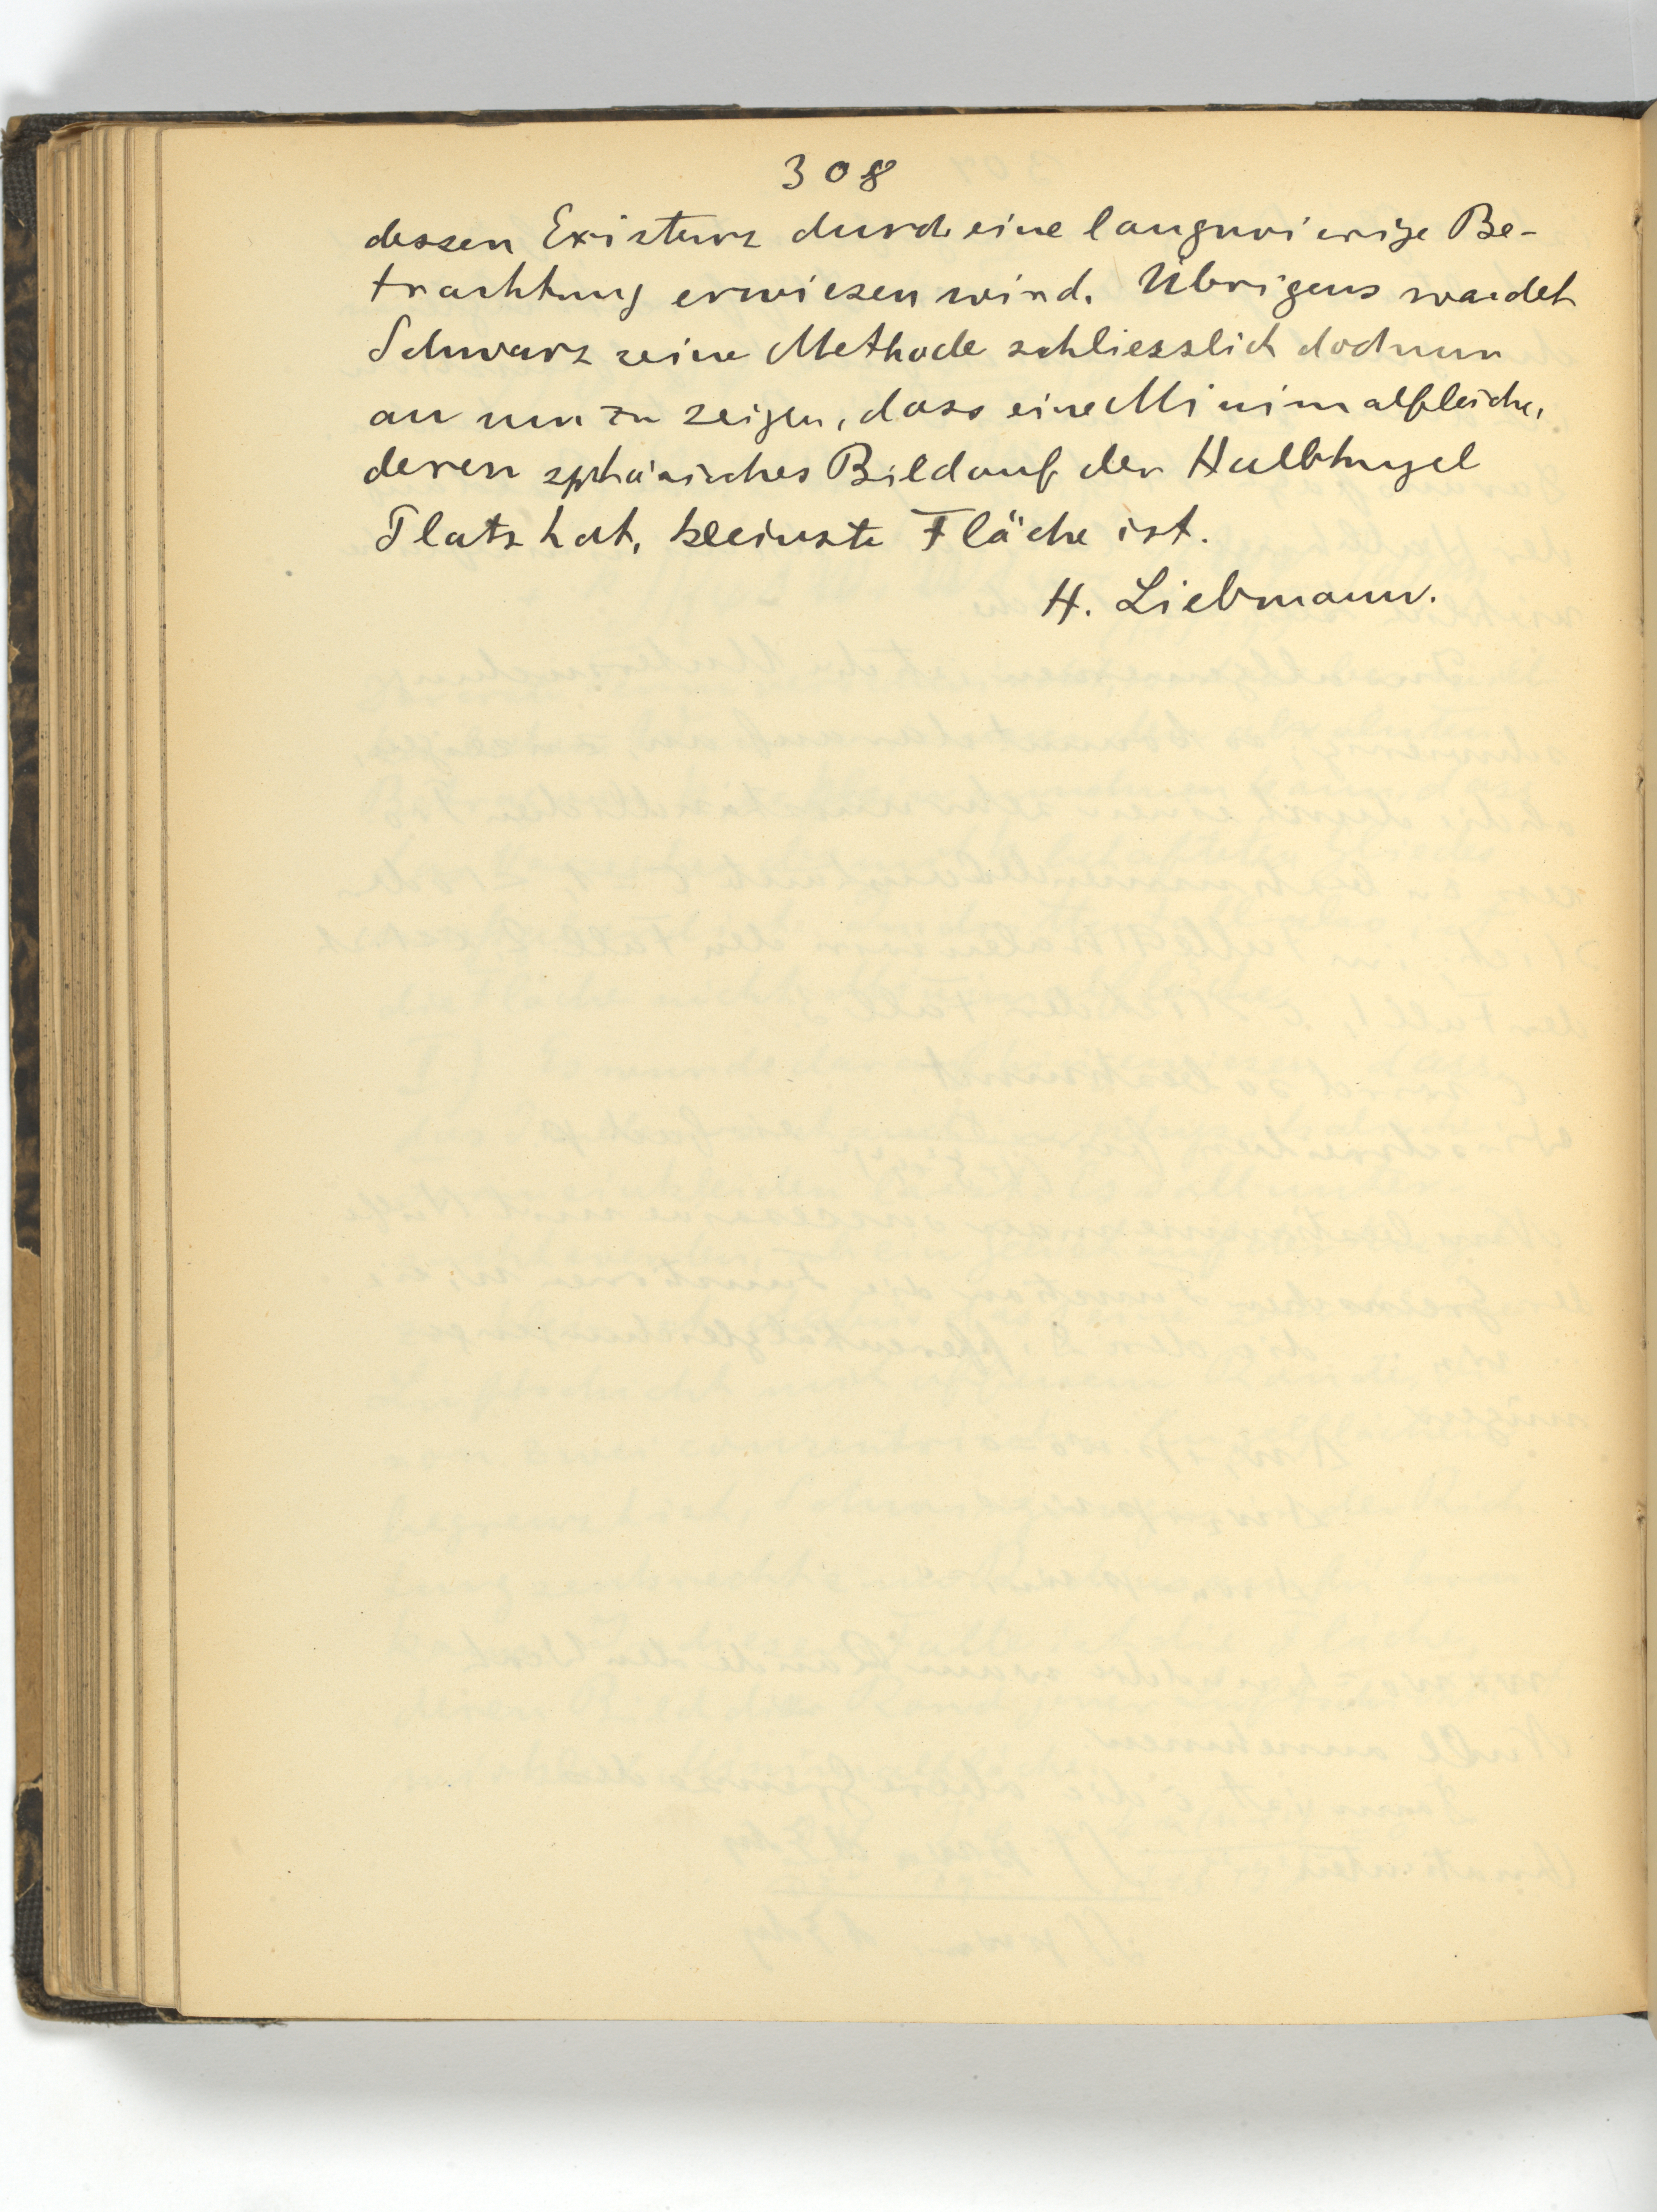 308
dessen Existenz durch eine langwierige Be-
trachtung erwiesen wird. Übrigens wendet
Schwarz seine Methode schliesslich doch nur
an um zu zeigen, dass eine Minimalfläche,
deren sphärisches Bild auf der Halbkugel
Platz hat, kleinste Fläche ist.
H. Liebmann.